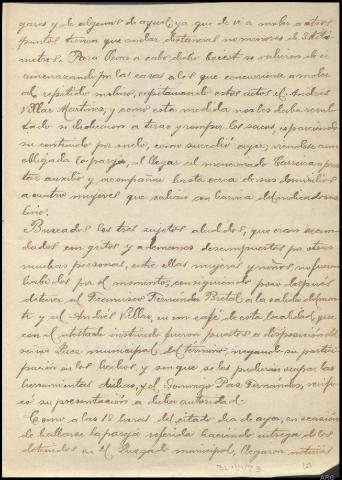 gares y de algunos de aquel, ya que de ir a moler a otros
puntos tienen que andar distancias no menores de 3 kiló-
metros. Para llevar a cabo dicho boicot se valieron de ir
amenazando por las casas a los que concurrieran a moler
al repetido molino, capitaneando estos actos el Andrés
Villar Martínez, y como esta medida no les daba resul-
tado se dedicaron a tirar y romper los sacos, esparciendo
su contenido por suelo, como sucedió ayer, viéndose
obligada la pareja, al llegar el mencionado Carreira a pres-
tar auxilio y acompañar hasta cerca de sus domicilios
a cuatro mujeres que salían con harina del indicado mo-
lino.
Buscados los tres sujetos aludidos, que eran secun-
dados con gritos y ademanes descompuestos por otras
muchas personas, entre ellas mujeres y niños, no fueron
habidos por el momento, consiguiendo poco después
detener, el Francisco Fernández a la salida del
te y el Andrés Villar, en un café de esta localidad, que
con el atestado instruido fueron puestos a disposición del
señor Juez municipal del término, negando su partici-
pación en los hechos, y sin que se les pudieran ocupar las
herramientas dichas, y el Domingo Paz Fernández, verifi-
có su presentación a dicha autoridad.
Como a las 18 horas del citado día de ayer, en ocasión
de hallarse la pareja referida haciendo entrega de los
detenidos en el Juzgado municipal, llegaron noticias